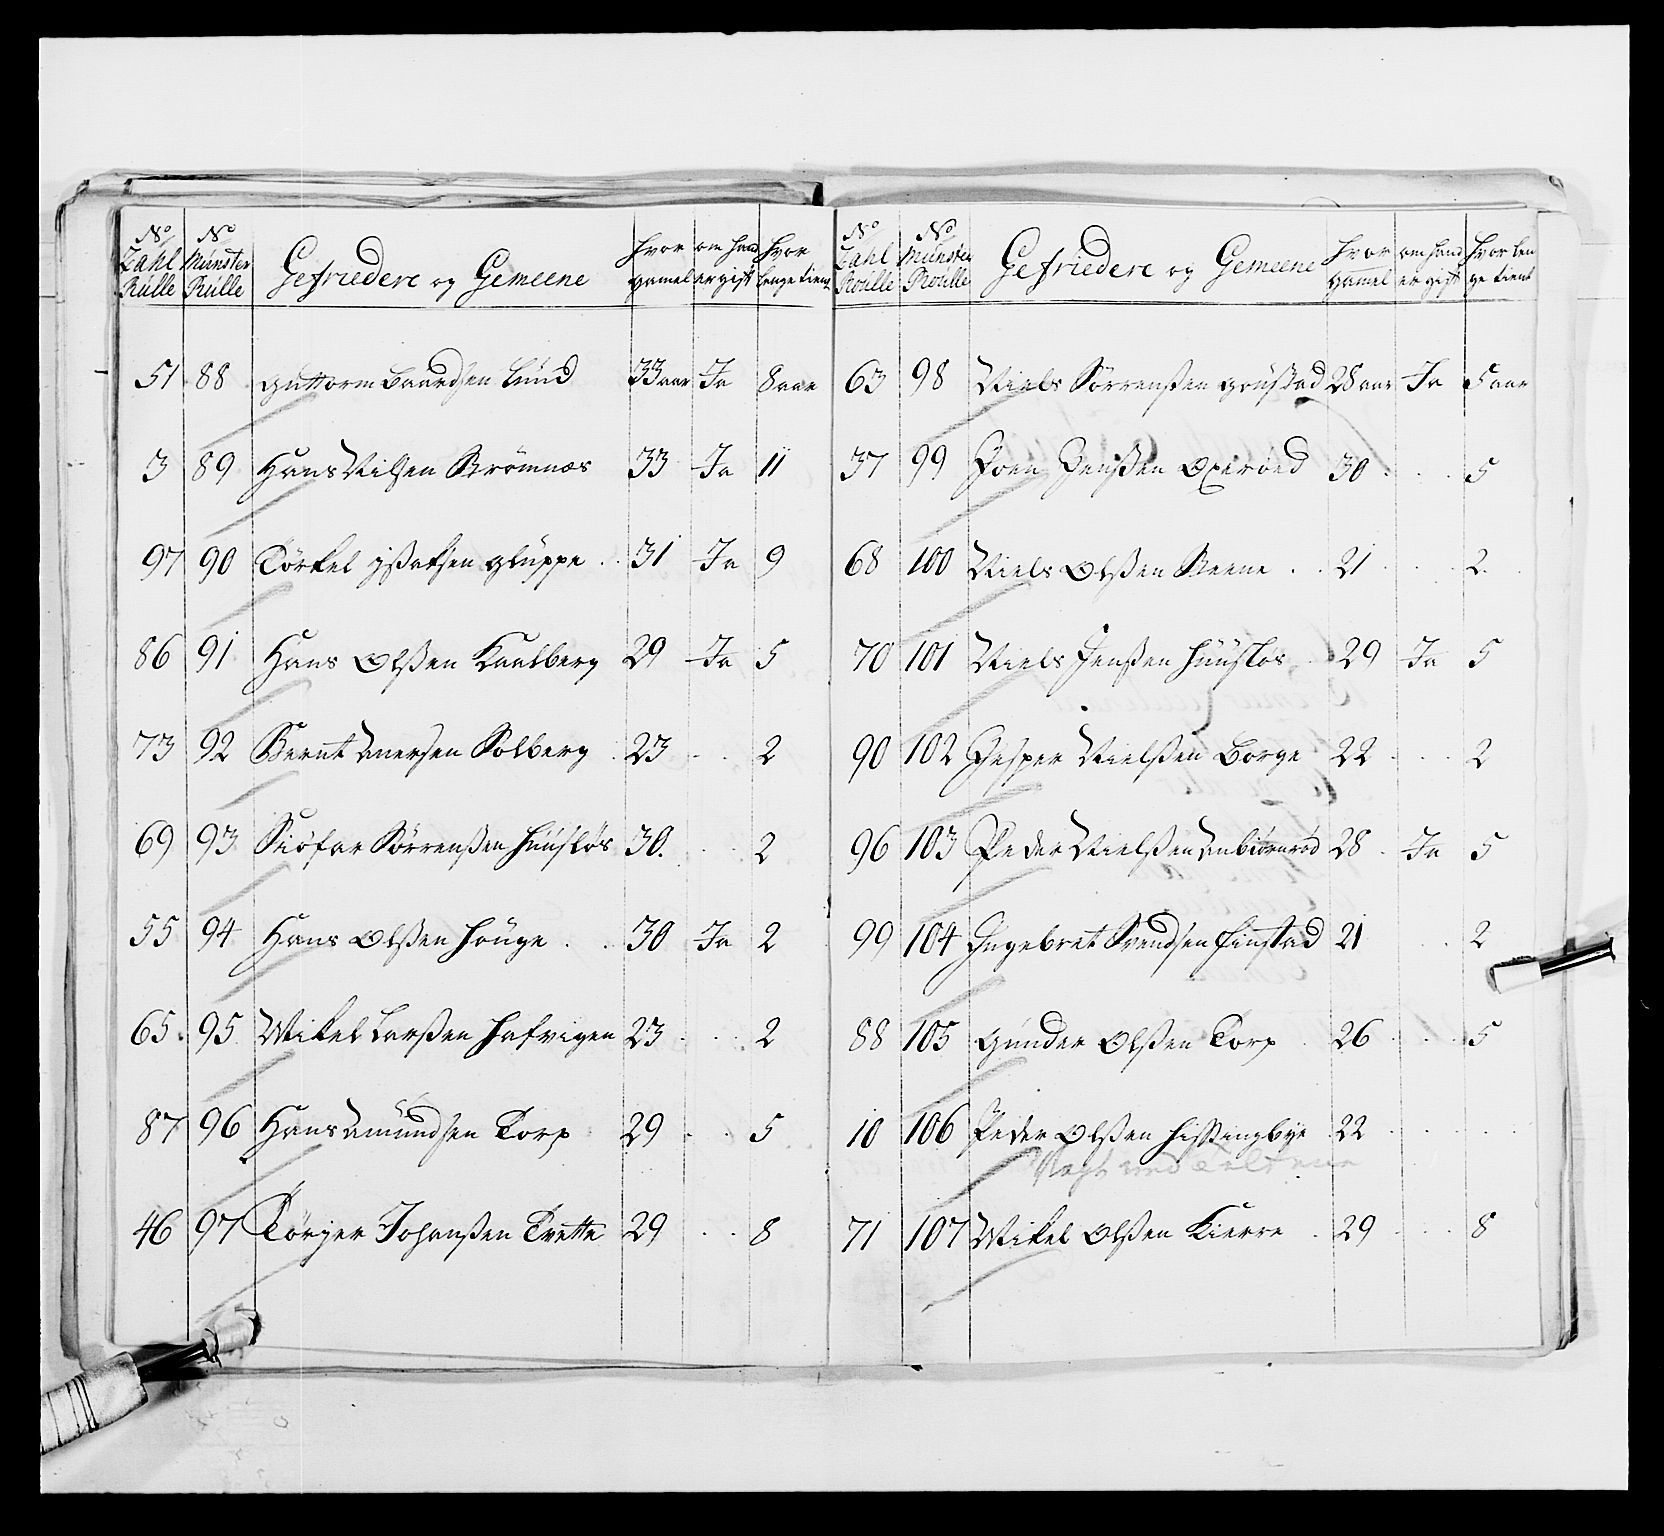 No Zahl Rulle | No Munster Rulle | Gefriedere og Gemeene | hvor gamel | om hand er gift | hvor lenge tient
51 88 Guttorm Baardsen Lund 33 aar Ja 8 aar
3 89 Hans Nilsen Strømnæs 33 Ja 11
97 90 Törkel Ißaksen Gluppe . . 31 Ja 9
86 91 Hans Olßen Kaalberg 29 Ja 5
73 92 Bernt Anersen Solberg . 23 . . . 2
69 93 Siöfar Sörrenßen Huusløs 30. . . 2
55 94 Hans Olßen Houge . . 30 Ja 2
65 95 Mikel Larßen Hafvigen 23 . . . 2
87 96 Hans Amundsen Torp 29 . . . 5
46 97 Törger Johanßen Tvette 29 . . . 8
No Zahl Roulle | No Munster Roulle | Gefriedere og Gemeene | Hvor gammel | om hand er gift | Hvor lenge tient
63 98 Niels Sörrenßen Grustad 28 aar Ja 5 aar
37 99 Joen Jenßen Oxeröed 30 . . . 5
68 100 Niels Olßen Steene . . 21 . . . 2.
70 101 Niels Jenßen Huusløs . 29 Ja 5
90 102 Jesper Nielßen Borge 22 . . . 2
96 103 Peder Nielßen Anbiørnrød 28 . Ja 5
99 104 Ingebret Svendsen Finstad 21 . . 2
88 105 Gunder Olßen Torp . 26 . . . 5
10 106 Peder Olßen Hissingbye 22 . . . .
Vagt ved Teltene
71 107 Mikel Olßen Kierre . 29 . . . 8